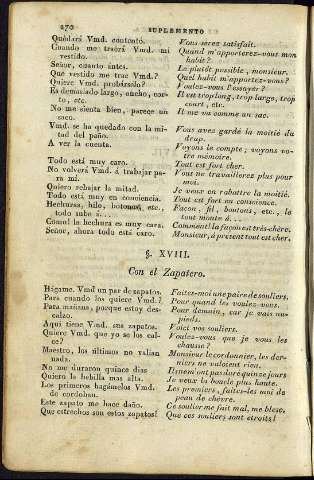 270
SUPLEMENTO
Quedará Vmd. contento.
Cuando me traerá Vmd. mi
vestido.
Señor, cuanto ántes.
Qué vestido me trae Vmd.?
Quiere Vmd. probárselo?
Es demasiado largo, ancho, cor-
to, etc.
No me sienta bien, parece un
saco.
Vmd. se ha quedado con la mi-
tad del paño.
A ver la cuenta.
Todo está muy caro.
No volverá Vmd. á trabajar pa-
ra mí.
Quiero rebajar la mitad.
Todo está muy en conciencia.
Hechuras, hilo, botones, etc.,
todo sube á...
Cómo! la hechura es muy cara.
Señor, ahora todo está caro.
Vous serez satisfait.
Quand m'apporterez-vous mon
habit?
Le plutôt possible, monsieur.
Quel habit m'apportez-vous?
Voulez-vous l'essayer?
Il est trop long, trop large, trop
court, etc.
Il me va comme un sac.
Vous avez gardé la moitié du
drap.
Voyons le compte; voyons vo-
tre mémoire.
Tout est fort cher.
Vous ne travaillerez plus pour
moi.
Je veux en rabattre la moitié.
Tout est fait en conscience.
Façon, fil, boutons, etc., le
tout monte à...
Comment! la façon est très-chère.
Monsieur, à présent tout est cher.
§. XVIII.
Con el Zapatero.
Hágame Vmd un par de zapatos.
Para cuando los quiere Vmd.?
Para mañana, porque estoy des-
calzo.
Aquí tiene Vmd. sus zapatos.
Quiere Vmd. que yo se los cal-
ce?
Maestro, los últimos no valian
nada.
No me duraron quince dias
Quiero la hebilla mas alta.
Los primeros hagámelos Vmd.
de cordoban.
Este zapato me hace daño.
Que estrechos son estos zapatos!
Faites-moi une paire de souliers.
Pour quand les voulez-vous.
Pour demain, car je vais nu-
pieds.
Voici vos souliers.
Voulez-vous que je vous les
chausse?
Monsieur le cordonnier, les der-
niers ne valoient rien.
Ils ne m'ont pas duré quinze jours
Je veux la boucle plus haute.
Les premiers, faites-les moi de
peau de chèvre.
Ce soulier me fait mal, me blese.
Que ces souliers sont étroits!